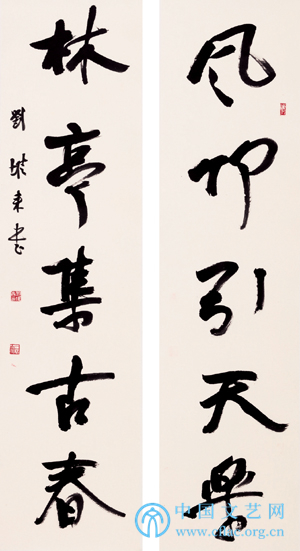 风引天樂
林亭集古春
劉来书
中国文艺网
www.cflac.org.cn